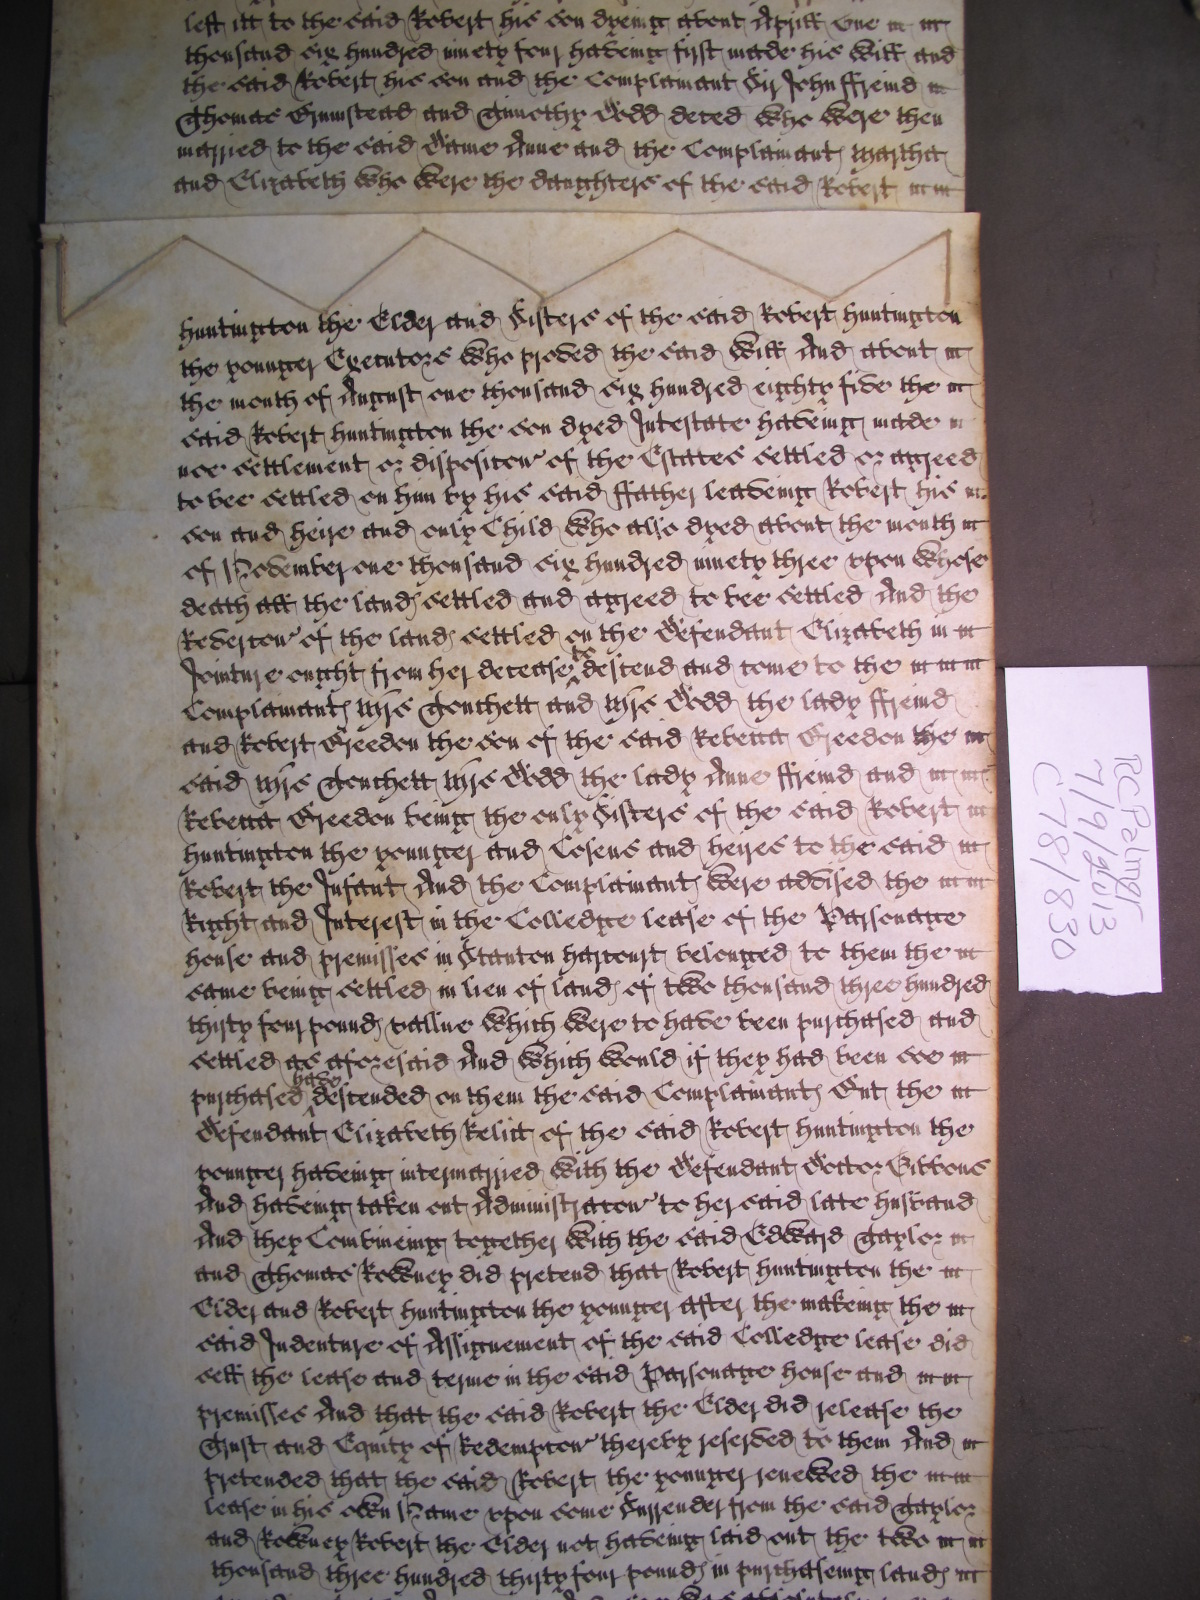 left itt to the said Robert his son dyeing about Aprill one
thousand six hundred ninety four haveing first made his will and
the said Robert his son and the Complainant Sir John ffreind
Thomas Grimstead and Timothy Dodd deced who were then
married to the said Dame Anne and the Complainants Martha
and Elizabeth who were the daughters of the said Robert
Huntington the Elder and Sisters of the said Robert Huntington
the younger Executors who proved the said will And about
the month of August one thousand six hundred eighty five the
said Robert Huntington the son dyed Intestate haveing made
noe settlement or disposicon of the Estates settled or agreed
to bee settled on him by his said ffather leaveing Robert his
son and heire and only Child who also dyed about the month
of November one thousand six hundred ninety three upon whose
death all the lands settled and agreed to bee settled And the
Revercon of the lands settled on the Defendant Elizabeth in
Jointure ought from her decease to descend and come to the
Complainants Mrs Touchett and Mrs Dodd the lady ffreind
and Robert Greedon the son of the said Rebecca Greedon the
said Mrs Touchett Mrs Dodd the lady Anne ffreind and
Rebecca Greedon being the only Sisters of the said Robert
Huntington the younger and Cosens and heires to the said
Robert the Infant And the Complainants were advised the
Right and Interest in the Colledge lease of the Parsonage
house and premisses in Stanton Harcourt belonged to them the
same being settled in lieu of lands of two thousand three hundred
thirty four pounds vallue which were to have been purchased and
settled as aforesaid And which would if they had been soe
purchased have descended on them the said Complainants But the
Defendant Elizabeth Relict of the said Robert Huntington the
younger haveing intermarried with the Defendant Doctor Gibbons
And haveing taken out Administracon to her said late husband
And they Combineing together with the said Edward Taylor
and Thomas Rowney did pretend that Robert Huntington the
Elder and Robert Huntington the younger after the makeing the
said Indenture of Assignement of the said Colledge lease did
sell the lease and terme in the said Parsonage house and
premisses And that the said Robert the Elder did release the
Trust and Equity of Redempcon thereby reserved to them And
pretended that the said Robert the younger renewed the
lease in his own Name upon some Surrender from the said Taylor
and Rowney Robert the Elder not haveing laid out the two
thousand three hundred thirty four pounds in purchaseing lands
RCPalmer
7/9/2013
C78/830